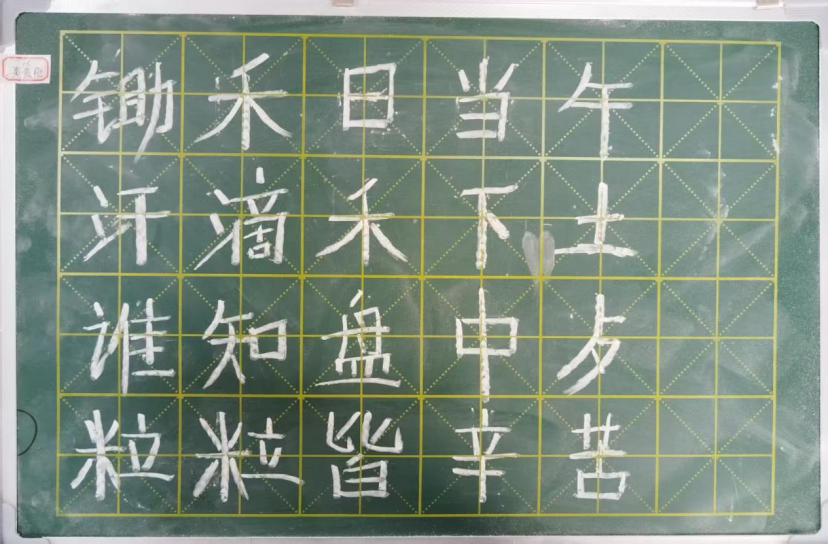 锄禾日当午
汗滴禾下土
谁知盘中歺
粒粒皆辛苦